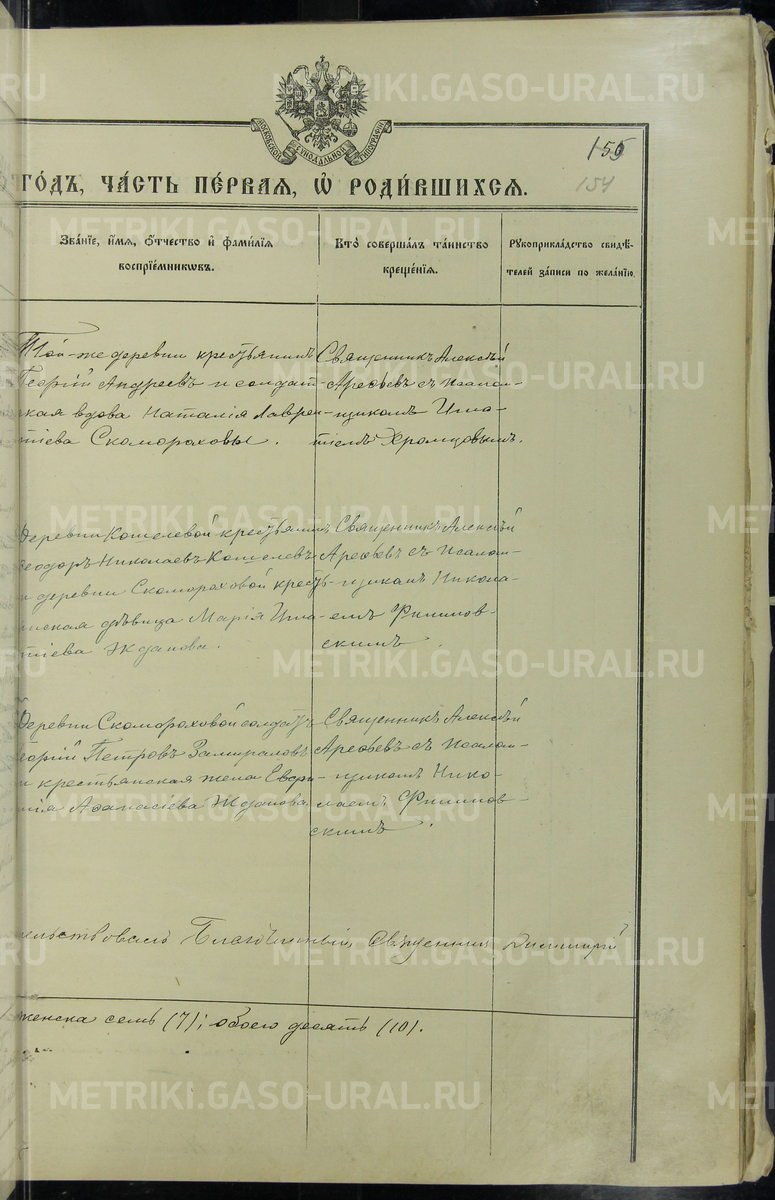 МОСКОВСКОЙ СѴНОДАЛЬНОЙ ТИПОГРАФІИ
155
154
ГО́ДЪ, ЧА́СТЬ ПЕ́РВАѦ, Ѡ РОДИ́ВШИХСѦ.
Зва́нїе, и́мѧ, ѻ́тчество и҆ фами́лїѧ
воспрїе́мникѡвъ.
Кто̀ соверша́лъ та́инство
креще́нїѧ.
Рꙋкоприкла́дство свидѣ́-
телей за́писи по жела́нїю.
Той-же деревни крестьянинъ
Георгій Андреевъ и солдат-
ская вдова Наталія Лаврен-
тіева Скомороховы.
Священникъ Алексѣй
Арефьевъ съ псалом-
щикомъ Игна-
тіемъ Хромцовымъ.
Деревни Кошелевой крестьянинъ
Ѳеодоръ Николаевъ Кошелевъ
и деревни Скомороховой кресть-
янская дѣвица Марія Игна-
тіева Жданова.
Священникъ Алексѣй
Арефьевъ съ псалом-
щикомъ Никола-
емъ Филипов-
скимъ.
Деревни Скомороховой солдатъ
Георгій Петровъ Замираловъ
и крестьянская жена Евфи-
мія Аѳанасіева Жданова.
Священникъ Алексѣй
Арефьевъ съ псалом-
щикомъ Нико-
лаемъ Филипов-
скимъ.
Благочинный, Священникъ Димитрій
женска семь (7); обоего десять (10).
METRIKI.GASO-URAL.RU